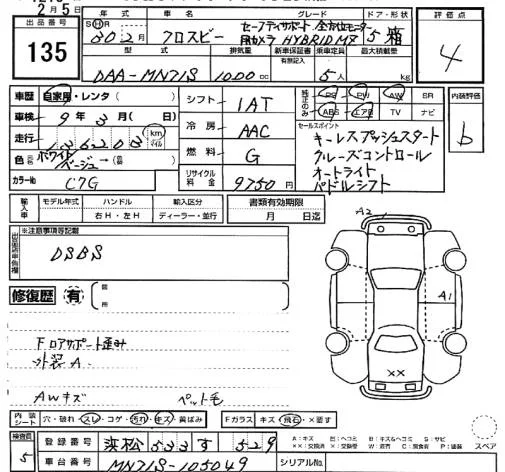 2月5日
出品番号 年式 車名 グレード ドア・形状 評価点
135
S H R 30.2月 クロスビー セーフティサポート 全方位モニター用カメラ HYBRID MZ 5 箱
4
型式 排気量 新車保証書 乗車定員 最大積載量
有無記入
DAA-MN71S 1000cc 5人 kg
車歴 自家用・レンタ( )
シフト 1AT
純正のみ PS PW AW SR 内装評価
ABS エアB TV ナビ
b
車検 9年3月(日)
冷房 AAC
セールスポイント
キーレスプッシュスタート
クルーズコントロール
オートライト
パドルシフト
走行 136203 km マイル
燃料 G
色 ホワイト/ベージュ→(番)
カラーNo C7G
リサイクル料金 9750円
輸入車 モデル年式 ハンドル 輸入区分 書類有効期限
右H・左H ディーラー・並行 月 日迄
※注意事項等記載
DSBS
A2
A1
××
修復歴 有 箇所
Fロアサポート歪み
外装A
AWキズ ペット毛
内装シート 穴・破れ・スレ・コゲ・汚れ・キズ・黄ばみ Fガラス キズ・飛石・×要す
スペア
検査員 5
登録番号 浜松 533 す 529
車台番号 MN71S-105049 シリアルNo.
A:キズ E:ヘコミ B:キズ&ヘコミ S:サビ
××:交換済 X:交換要 W:波済 C:腐食有 P:塗装